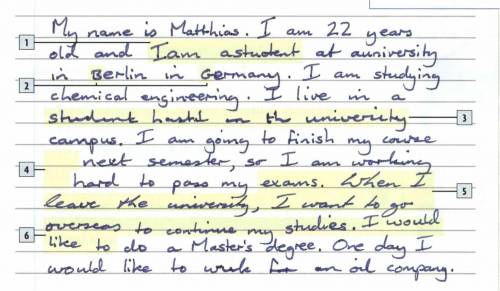 My name is Matthias. I am 22 years
1
old and I am a student at a university
in Berlin in Germany. I am studying
2
chemical engineering. I live in a
student hostel on the university
3
campus. I am going to finish my course
4
next semester, so I am working
hard to pass my exams. When I
5
leave the university, I want to go
overseas to continue my studies. I would
6
like to do a Master's degree. One day I
would like to work for an oil company.